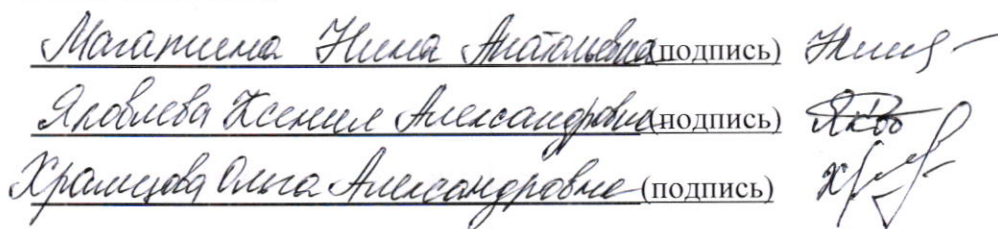 Нина Анатольевна (подпись)
Яковлева Ксения Александровна (подпись)
Храмцова Ольга Александровна (подпись)